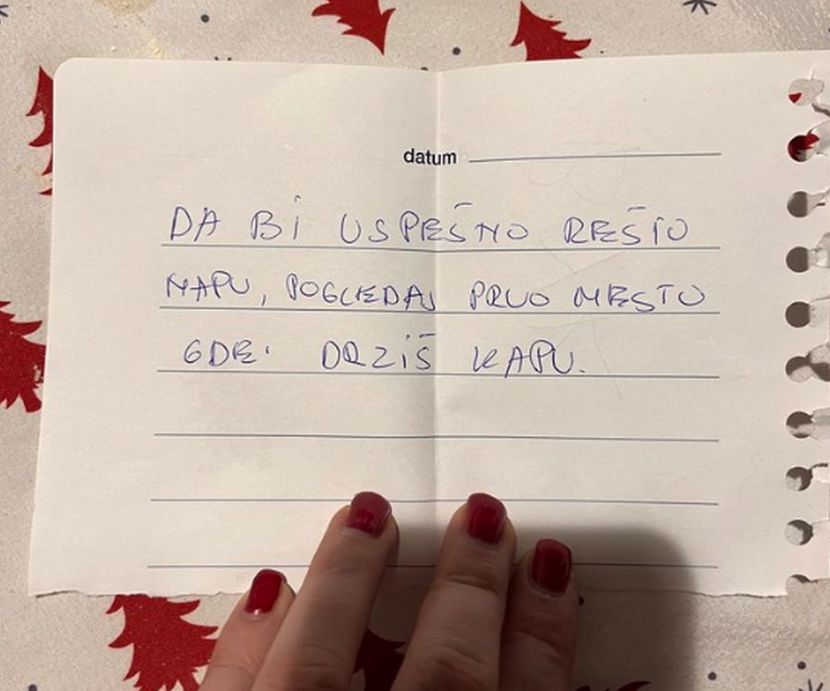 datum
DA BI USPEŠNO REŠIO
MAPU, POGLEDAJ PRVO MESTO
GDE DRŽIŠ KAPU.